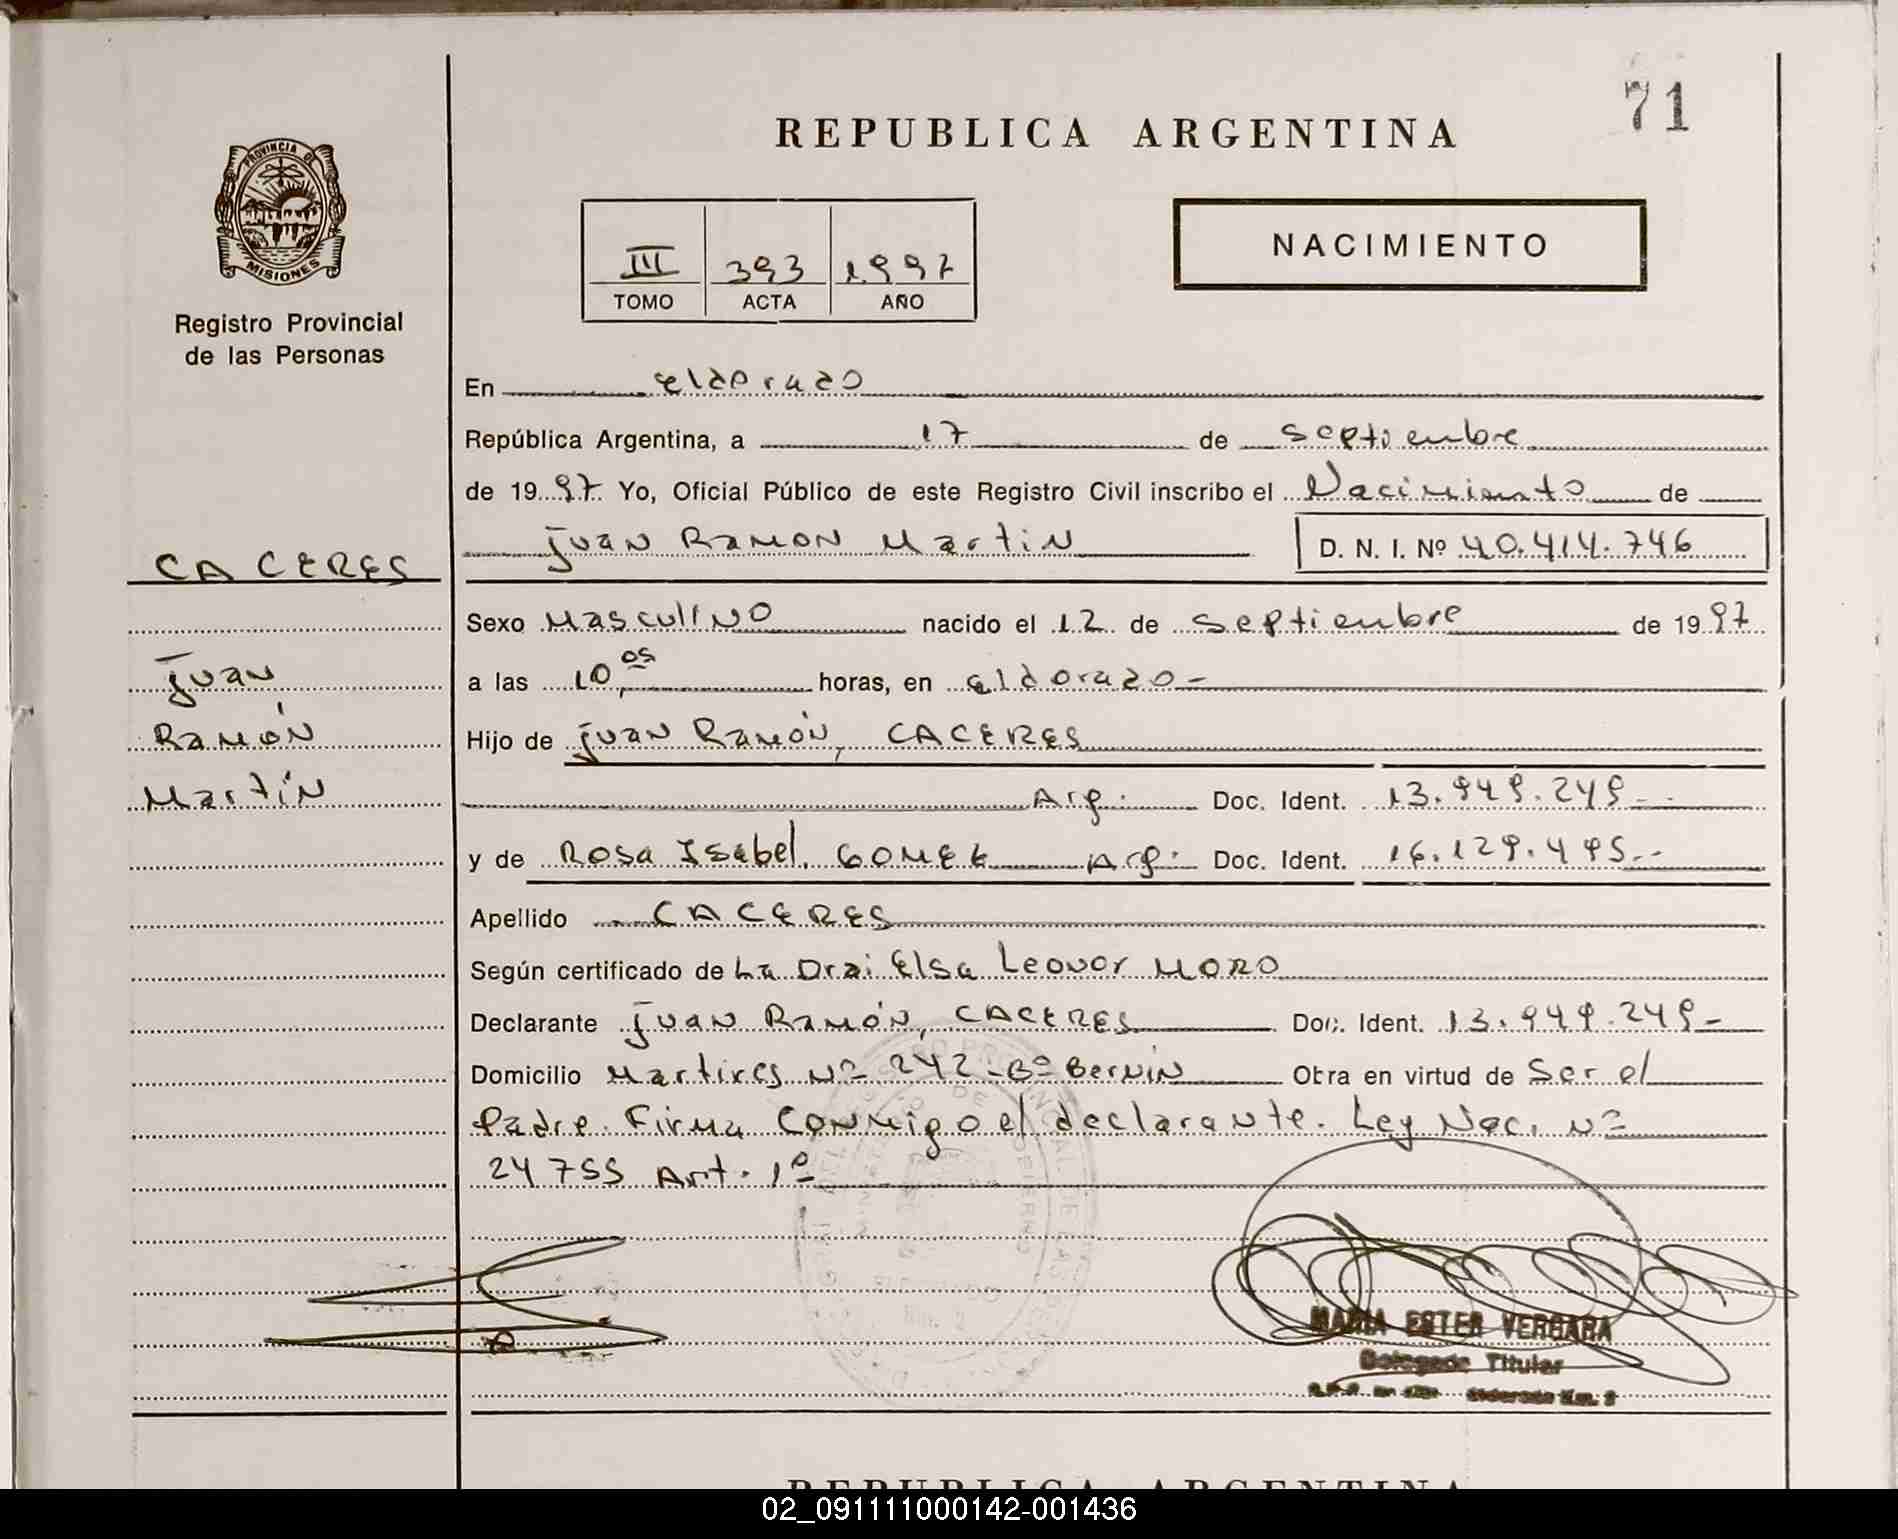 71
REPUBLICA ARGENTINA
PROVINCIA DE
MISIONES
Registro Provincial
de las Personas
III 393 1.997
TOMO ACTA AÑO
NACIMIENTO
En eldorado
República Argentina, a 17 de septiembre
de 1997. Yo, Oficial Público de este Registro Civil inscribo el Nacimiento de
Juan Ramon Martin D. N. I. Nº 40.414.746
CACERES
Sexo Masculino nacido el 12 de septiembre de 1997
Juan
a las 10,05 horas, en eldorado-
Ramón
Hijo de Juan Ramón, CACERES
Martín
Arg. Doc. Ident. 13.949.249--
y de Rosa Isabel, GOMEZ Arg. Doc. Ident. 16.129.495--
Apellido CACERES
Según certificado de La Dra: Elsa Leonor MORO
Declarante Juan Ramón, CACERES Doc. Ident. 13.949.249-
Domicilio Martires Nº 242-Bº Bernin Obra en virtud de Ser el
Padre. Firma Conmigo el declarante. Ley Nac. Nº
24755 Art. 1º
MARIA ESTER VERGARA
Delegada Titular
Eldorado Km. 2
REPUBLICA ARGENTINA
02_091111000142-001436